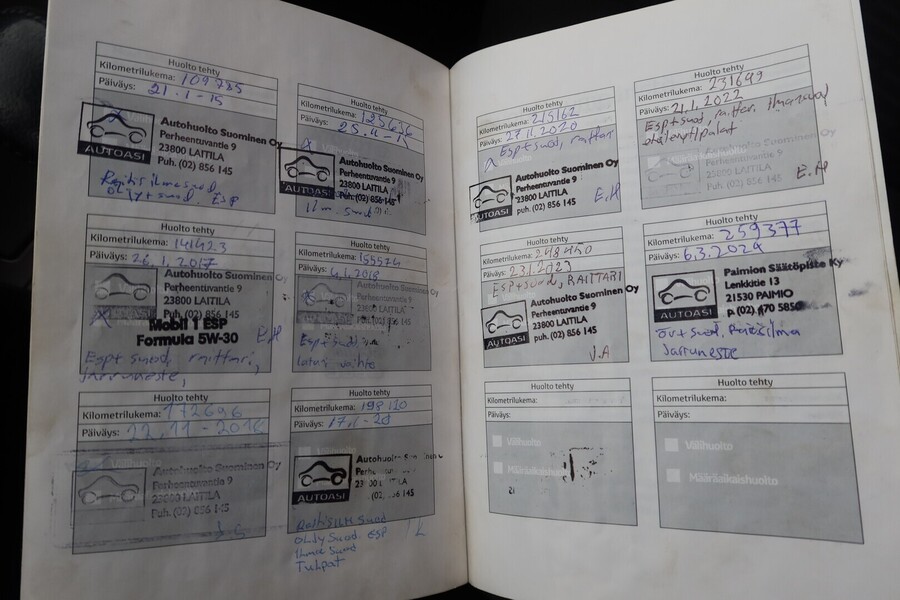 Huolto tehty
Kilometrilukema: 109785
Päiväys: 21.1-15
Autohuolto Suominen Oy
Perheentuvantie 9
23800 LAITILA
Puh. (02) 856 145
AUTOASI
Huolto tehty
Kilometrilukema: 125636
Päiväys:
Autohuolto Suominen Oy
Perheentuvantie 9
23800 LAITILA
Puh. (02) 856 145
AUTOASI
Huolto tehty
Kilometrilukema: 141423
Päiväys: 26.1.2017
Autohuolto Suominen Oy
Perheentuvantie 9
23800 LAITILA
Puh. (02) 856 145
Mobil 1 ESP
Formula 5W-30
E.H
Esp+ suod, raittari,
jarruneste,
Huolto tehty
Kilometrilukema: 155574
Päiväys: 4.1.2018
Autohuolto Suominen Oy
Perheentuvantie 9
23800 LAITILA
Esp+ suod
Huolto tehty
Kilometrilukema: 172696
Päiväys: 22.11-
Autohuolto Suominen Oy
Perheentuvantie 9
23800 LAITILA
Puh. (02) 856 145
AUTOASI
Huolto tehty
Kilometrilukema: 198120
Päiväys:
AUTOASI
Raitis ILM Suod
Öljy Suod. ESP
Ilman Suod
Tulpat
Huolto tehty
Kilometrilukema: 215162
Päiväys: 27.11.2020
Esp+ suod, raittari
Autohuolto Suominen Oy
Perheentuvantie 9
23800 LAITILA
puh. (02) 856 145
AUTOASI
E.H
Huolto tehty
Kilometrilukema: 231649
Päiväys: 21.1.2022
Esp+ suod, raitter, ilmansuod
E.H
Huolto tehty
Kilometrilukema: 248450
Päiväys: 23.1.2023
ESP+SUOD, RAITTARI
Autohuolto Suominen Oy
Perheentuvantie 9
23800 LAITILA
puh. (02) 856 145
AUTOASI
J.A
Huolto tehty
Kilometrilukema: 259377
Päiväys: 6.3.2024
Paimion Säätöpiste Ky
Lenkkitie 13
21530 PAIMIO
p. (02) 470 5850
AUTOASI
Öv+ suod, Raitisilma
Jarruneste
Huolto tehty
Kilometrilukema:
Päiväys:
Välihuolto
Määräaikaishuolto
Huolto tehty
Kilometrilukema:
Päiväys:
Välihuolto
Määräaikaishuolto